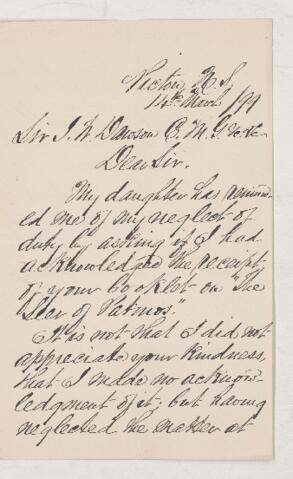 Pictou, N.S.
14th March /99
Sir J. W. Dawson C. M. G. &c &c
Dear Sir.
My daughter has remind-
ed me of my neglect of
duty by asking if I had
acknowledged the receipt
of your booklet on "The
Seer of Patmos."
It is not that I did not
appreciate your kindness,
that I made no acknow-
ledgment of it; but having
neglected the matter at